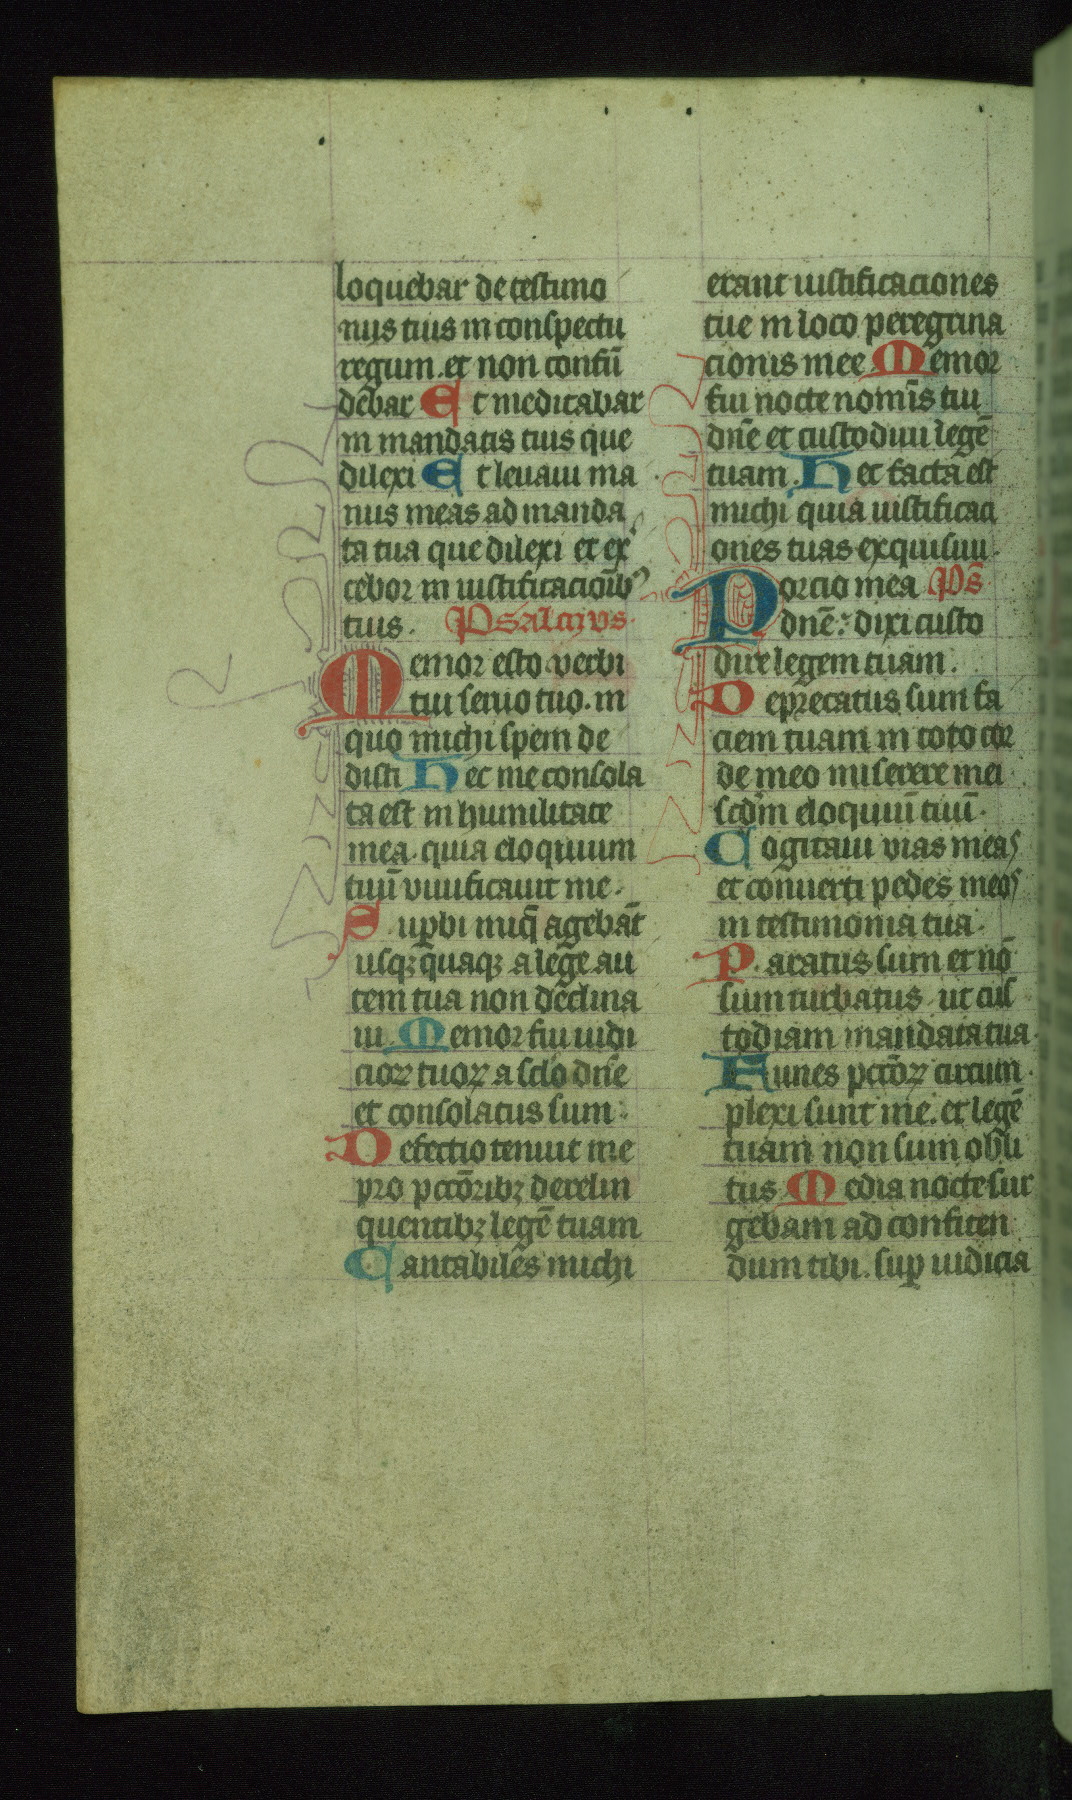 loquebar de testimo
nijs tuis in conspectu
regum. et non confu̅
de̅bar Et meditabar
in mandatis tuis que
dilexi Et leuaui ma
nus meas ad manda
ta tua que dilexi et ex
cebor in iustificacio̅ib⁹
tuis. Psalmus
Memor esto verbi
tui seruo tuo. in
quo michi spem de
disti Hec me consola
ta est in humilitate
mea. quia eloquium
tuu̅ viuificauit me.
Sup̱bi iniq̅ ageba̅t
usqꝫq̅uaqꝫ a lege au
tem tua non declina
ui. Memor fui iudi
cioꝝ tuoꝝ a sclo dn̅e
et consolatus sum.
Defectio tenuit me
pro pcto̅ribꝫ derelin
quentibꝫ lege̅ tuam
Cantabiles michi
erant iustificaciones
tue in loco peregrina
cionis mee Memor
fui nocte nomi̅s tui
dn̅e et custodiui lege̅
tuam. Hec facta est
michi quia iustificaci
ones tuas exquisiui.
Porcio mea Ps̅
dne̅: dixi custo
dire legem tuam.
Deprecatus sum fa
ciem tuam in toto cor
de meo miserere mei
scd̅m eloquiu̅ tuu̅.
Cogitaui vias meas
et conuerti pedes meos
in testimonia tua.
Paratus sum et no̅
sum turbatus. ut cus
todiam mandata tua.
Funes pcto̅ꝝ circum
plexi sunt me. et lege̅
tuam non sum obli
tus Media nocte sur
gebam ad confiten
dum tibi. sup̱ iudicia